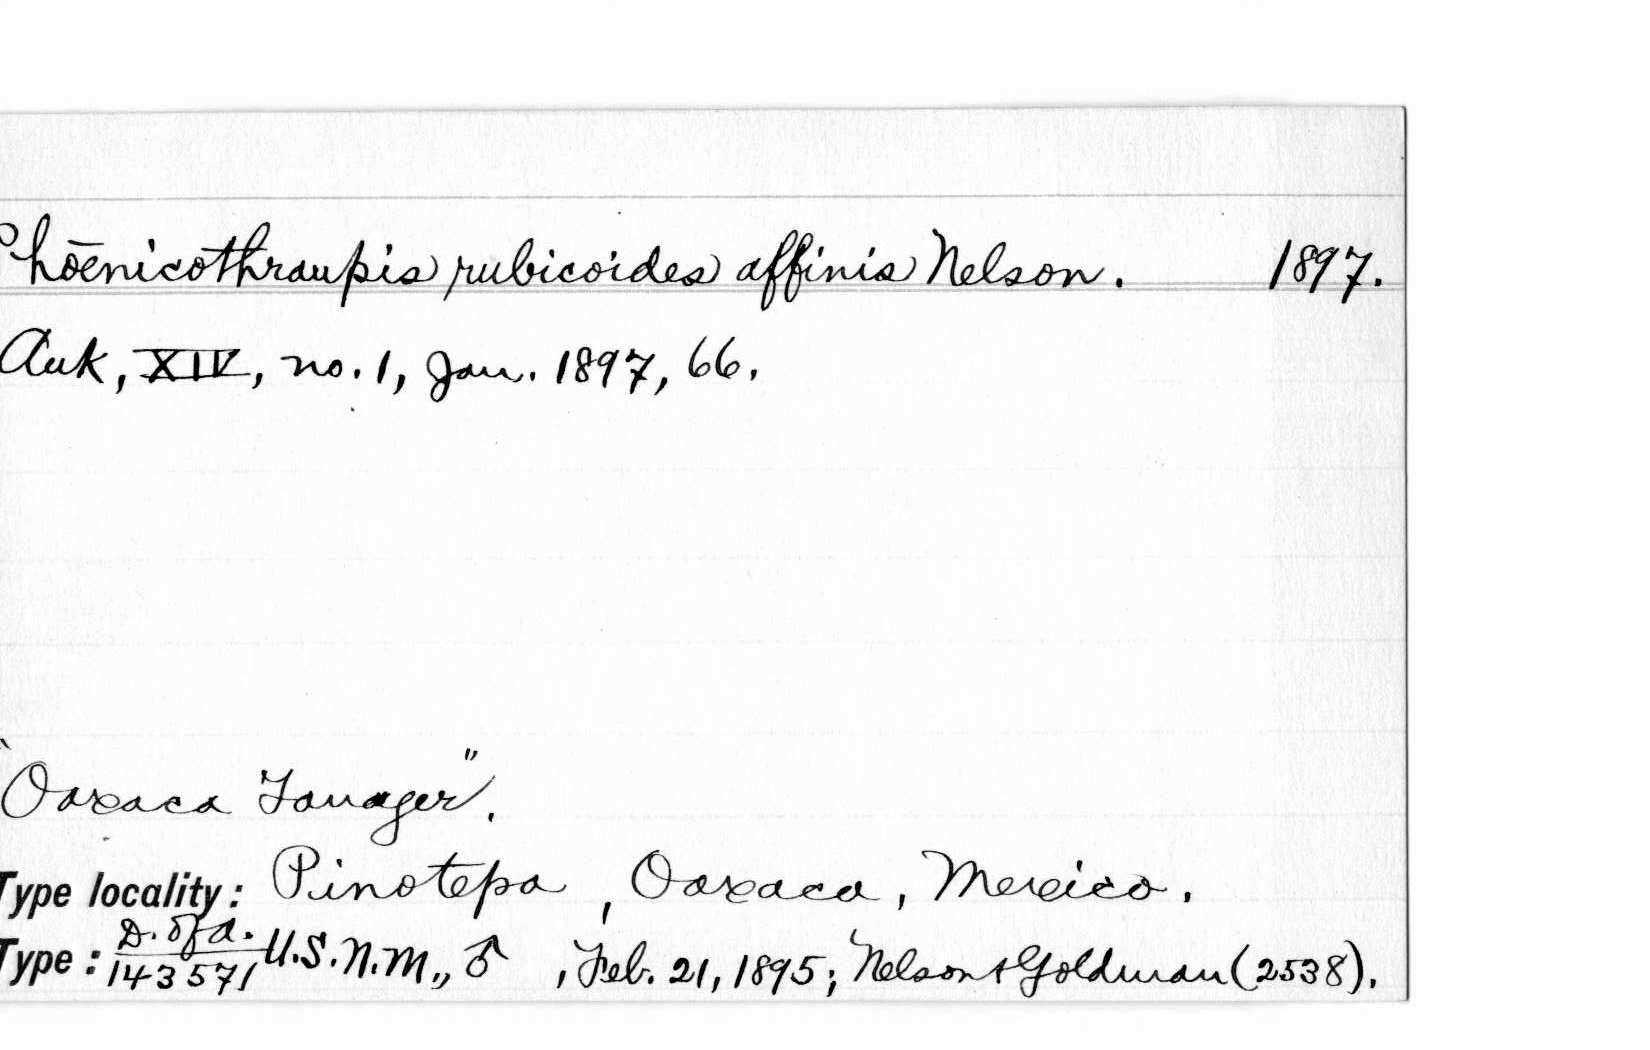 Phoenicothraupis rubicoides affinis Nelson. 1897.
Auk, XIV, no. 1, Jan. 1897, 66.
"Oaxaca Tanager".
Type locality: Pinotepa, Oaxaca, Mexico.
D. of A.
Type: 143571 U.S.N.M., ♂ , Feb. 21, 1895; Nelson & Goldman (2538).